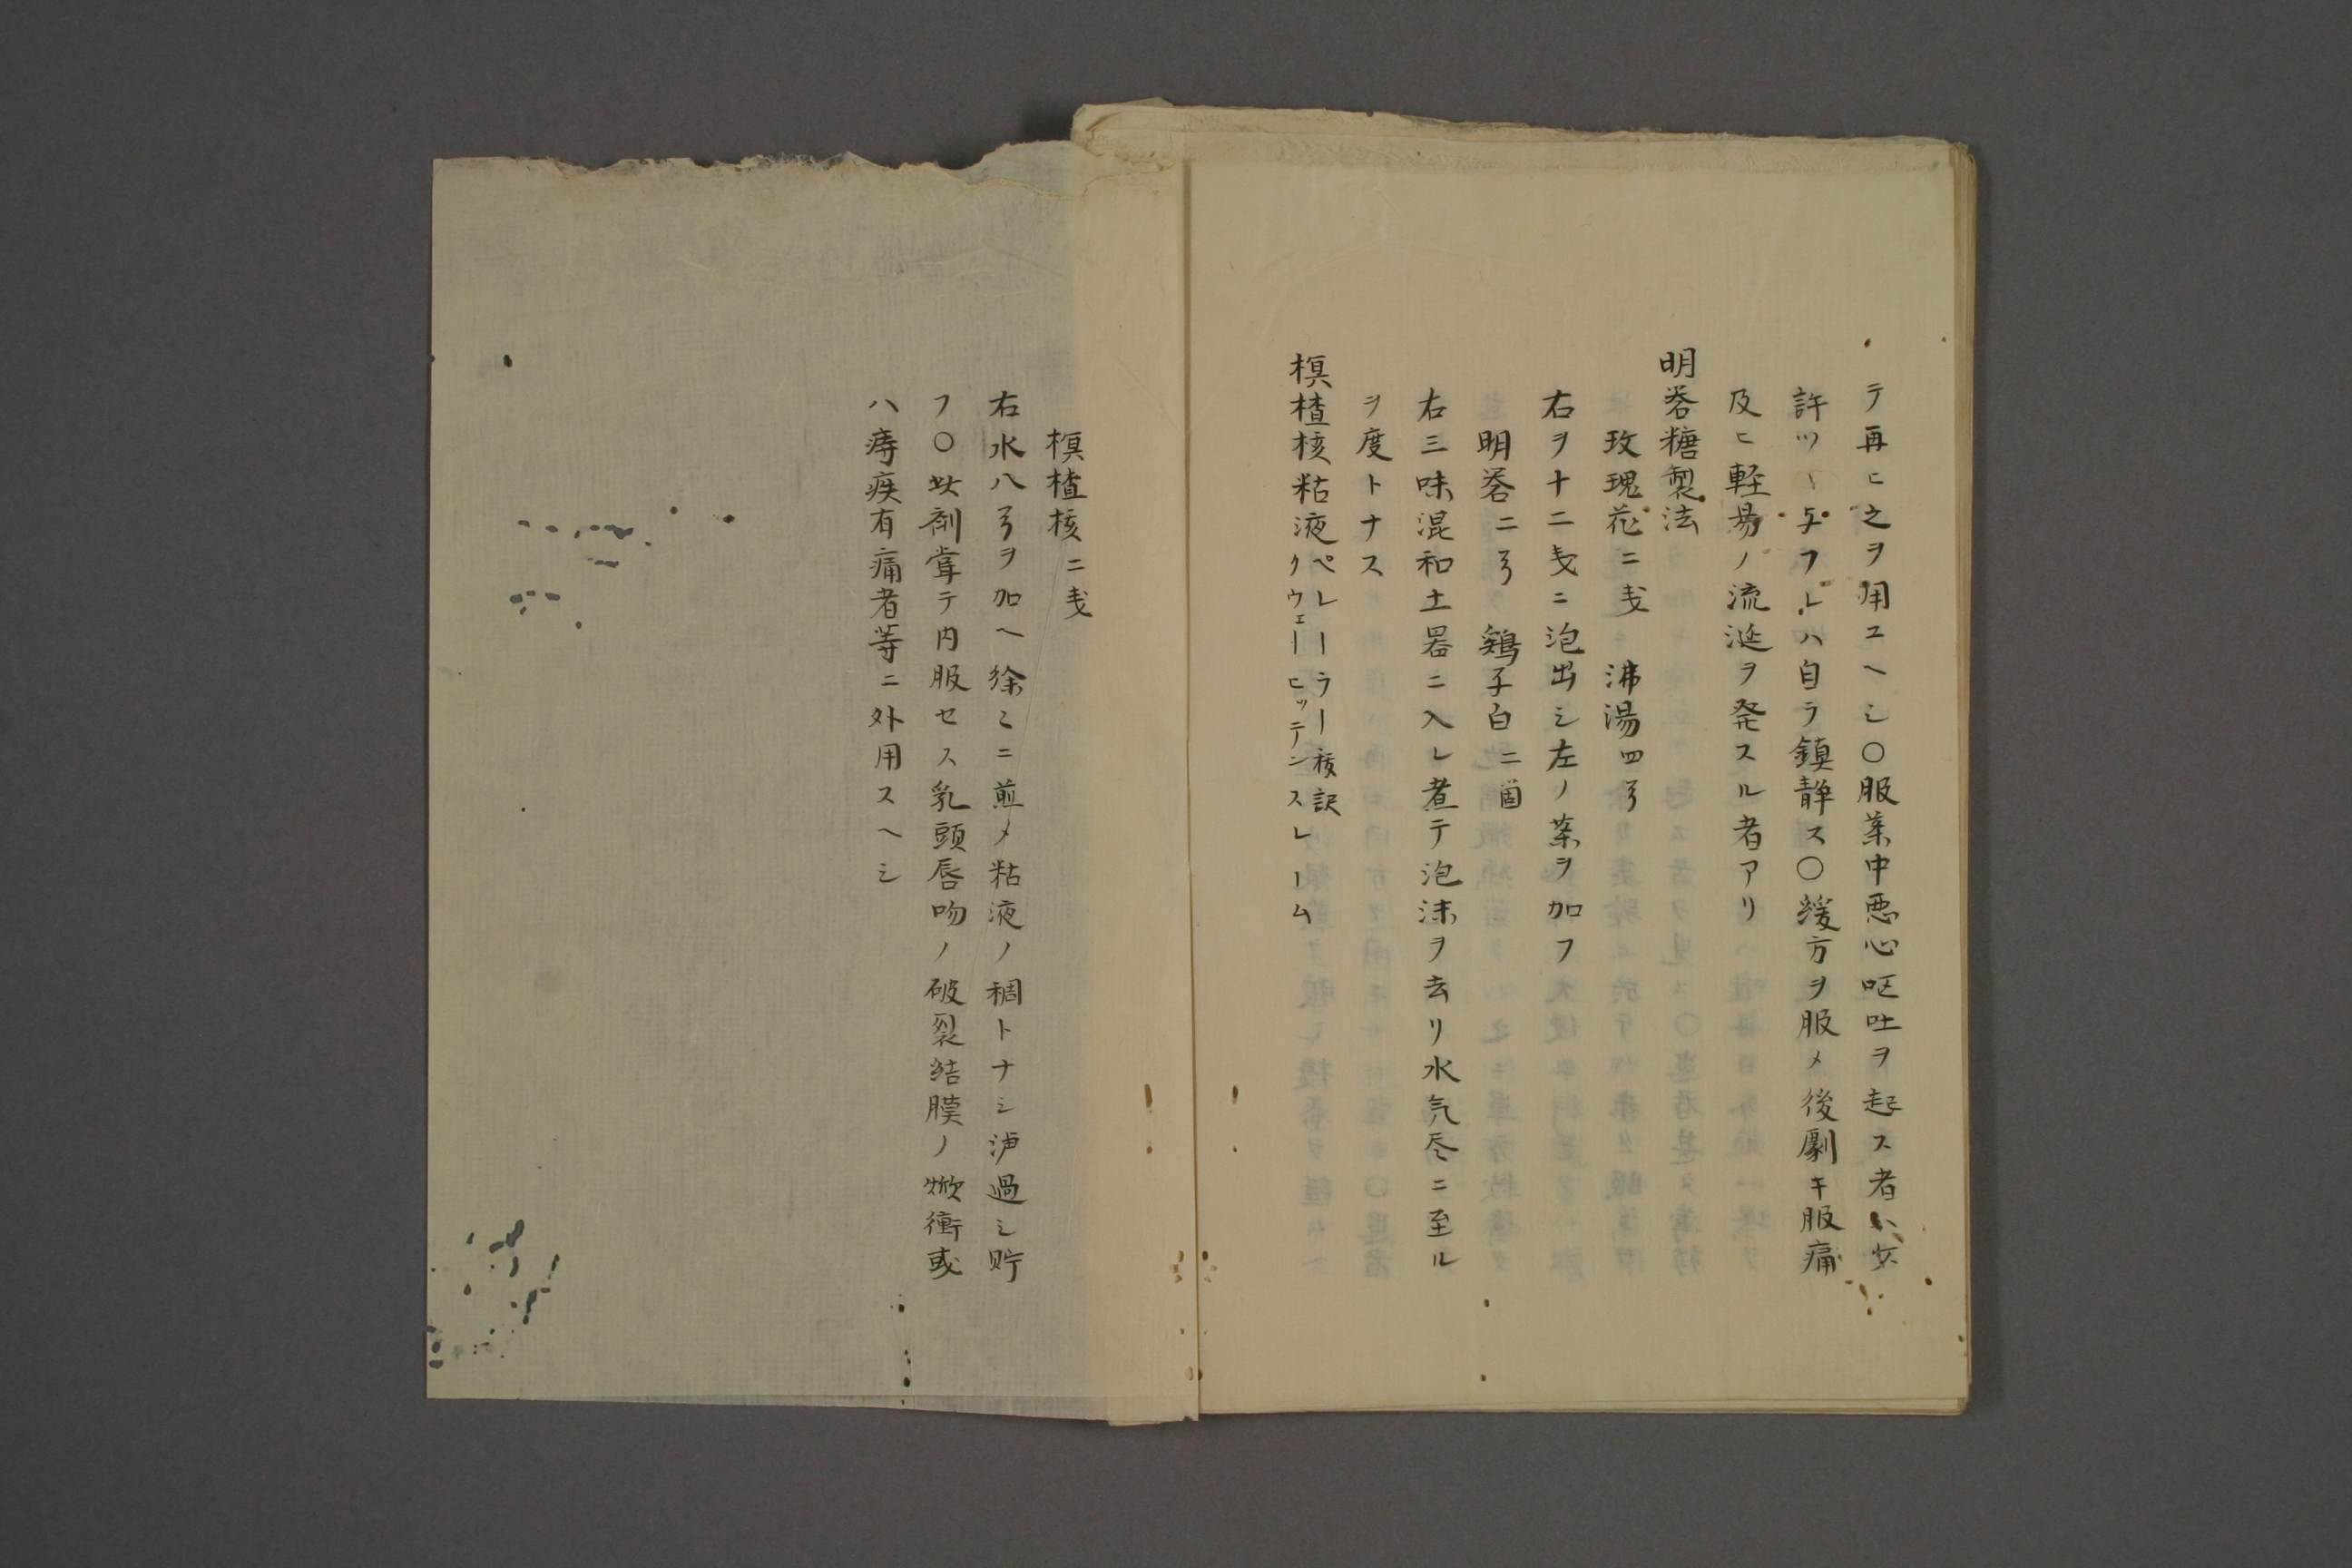 テ再ヒ之ヲ用ユヘシ〇服薬中悪心嘔吐ヲ起ス者ハ少
許ツヽ与フレハ自ラ鎮静ス〇緩方ヲ服メ後劇キ服痛
及ヒ軽易ノ流涎ヲ発スル者アリ
明礬糖製法
玫瑰花二戔 沸湯四弓
右ヲ十二戔ニ泡出シ左ノ薬ヲ加フ
明礬二弓 鶏子白二箇
右三味混和土器ニ入レ煮テ泡沫ヲ去リ水気尽ニ至ル
ヲ度トナス
榠樝核粘液 ペレーラー 訳
クウェーヒッテンスレーム
榠樝核二戔
右水八弓ヲ加ヘ徐々ニ煎メ粘液ノ稠トナシ濾過シ貯
フ〇此剤嘗テ内服セス乳頭唇吻ノ破裂結膜ノ焮衝或
ハ痔疾有痛者等ニ外用スヘシ